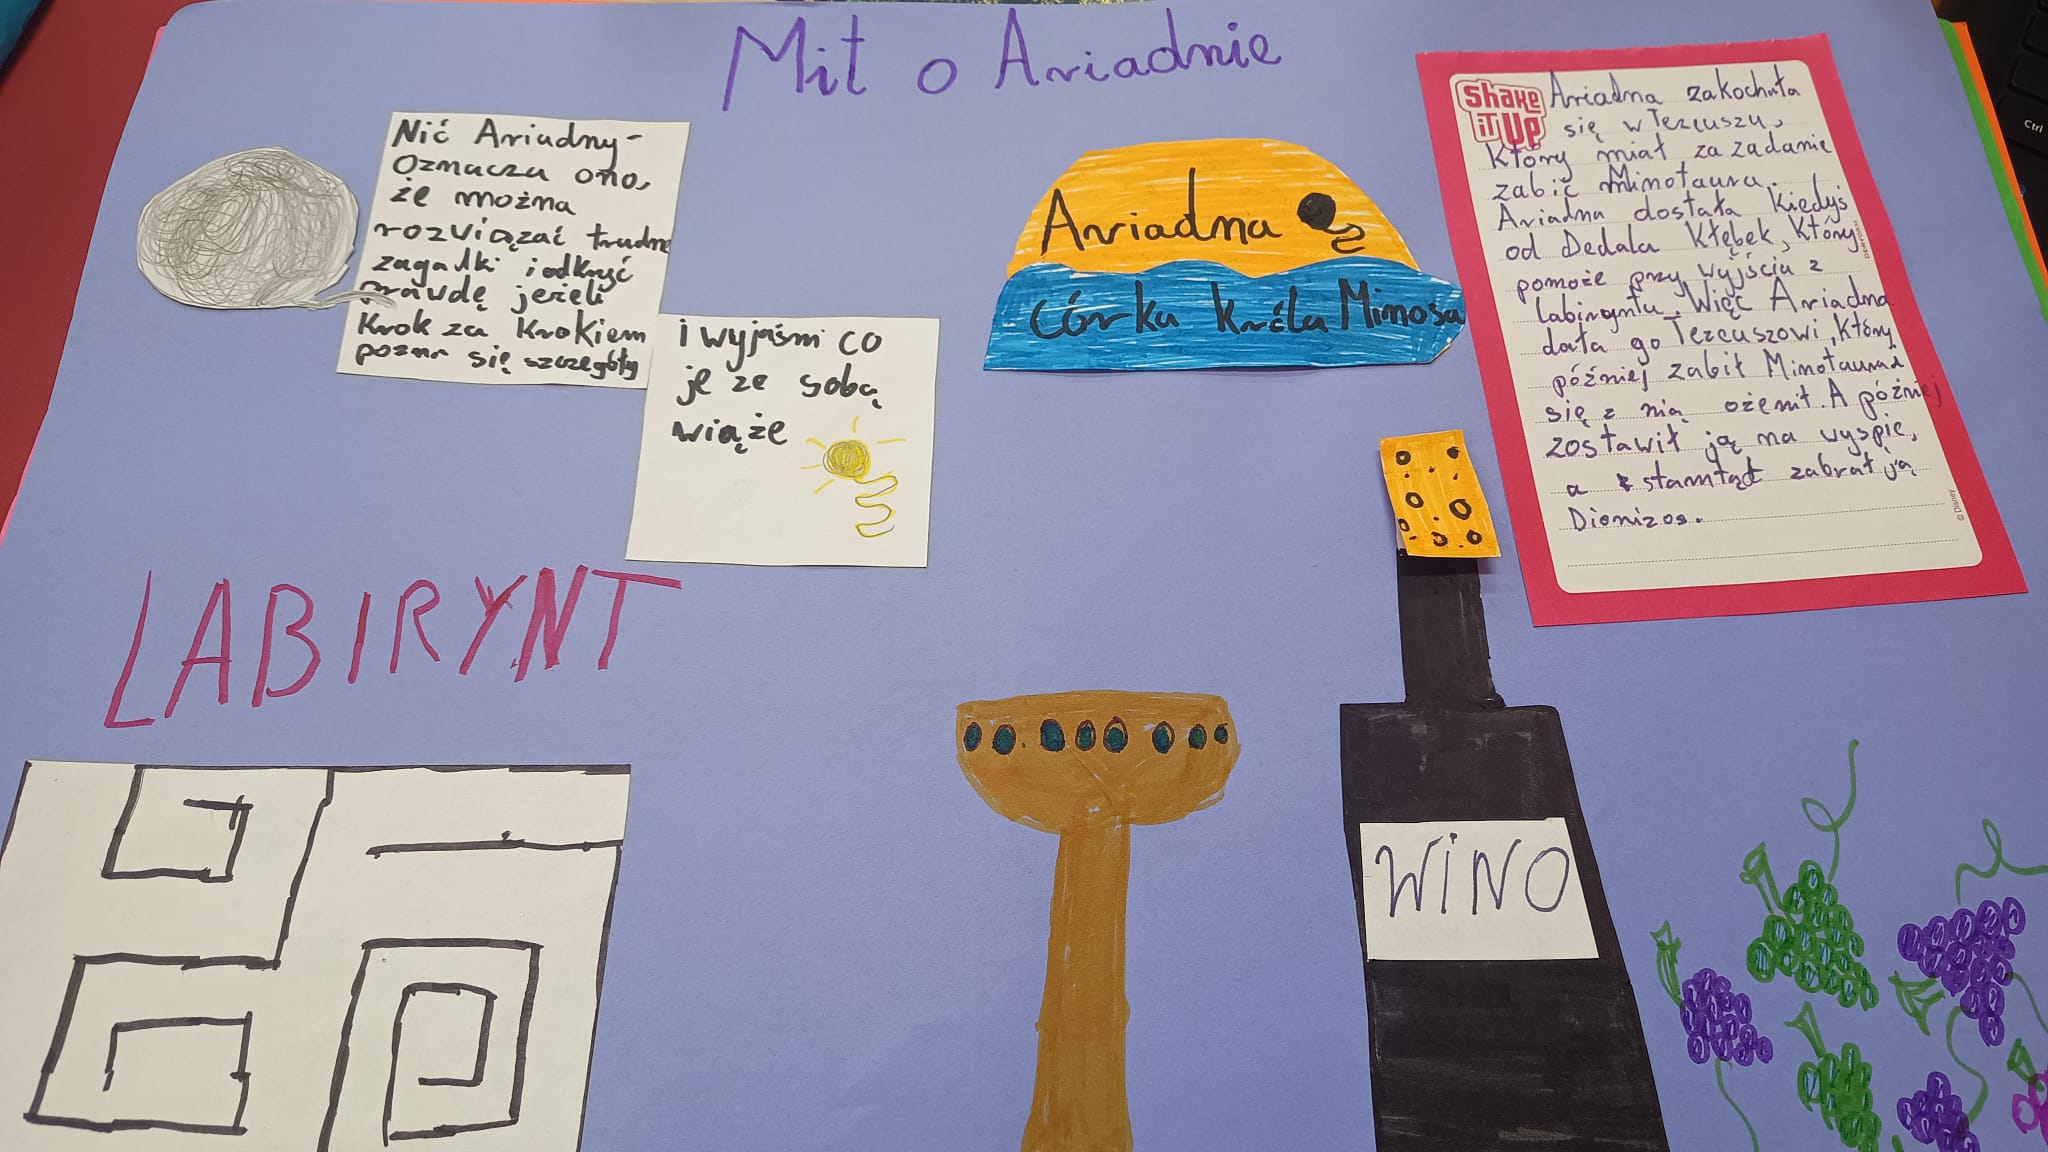 Mit o Ariadnie
Nić Ariadny -
Oznacza ono,
że można
rozwiązać trudne
zagadki i odkryć
prawdę jeżeli
krok za krokiem
pozna się szczegóły
i wyjaśni co
je ze sobą
wiąże
Ariadna
córka króla Mimosa
Shake
it Up
Ariadna zakochała
się w Tezeuszu,
który miał za zadanie
zabić Minotaura.
Ariadna dostała kiedyś
od Dedala kłębek, który
pomoże przy wyjściu z
labiryntu. Więc Ariadna
dała go Tezeuszowi, który
później zabił Minotaura i
się z nią ożenił. A później
zostawił ją na wyspie,
a stamtąd zabrał ją
Dionizos.
© Disney
LABIRYNT
WINO
Ctrl